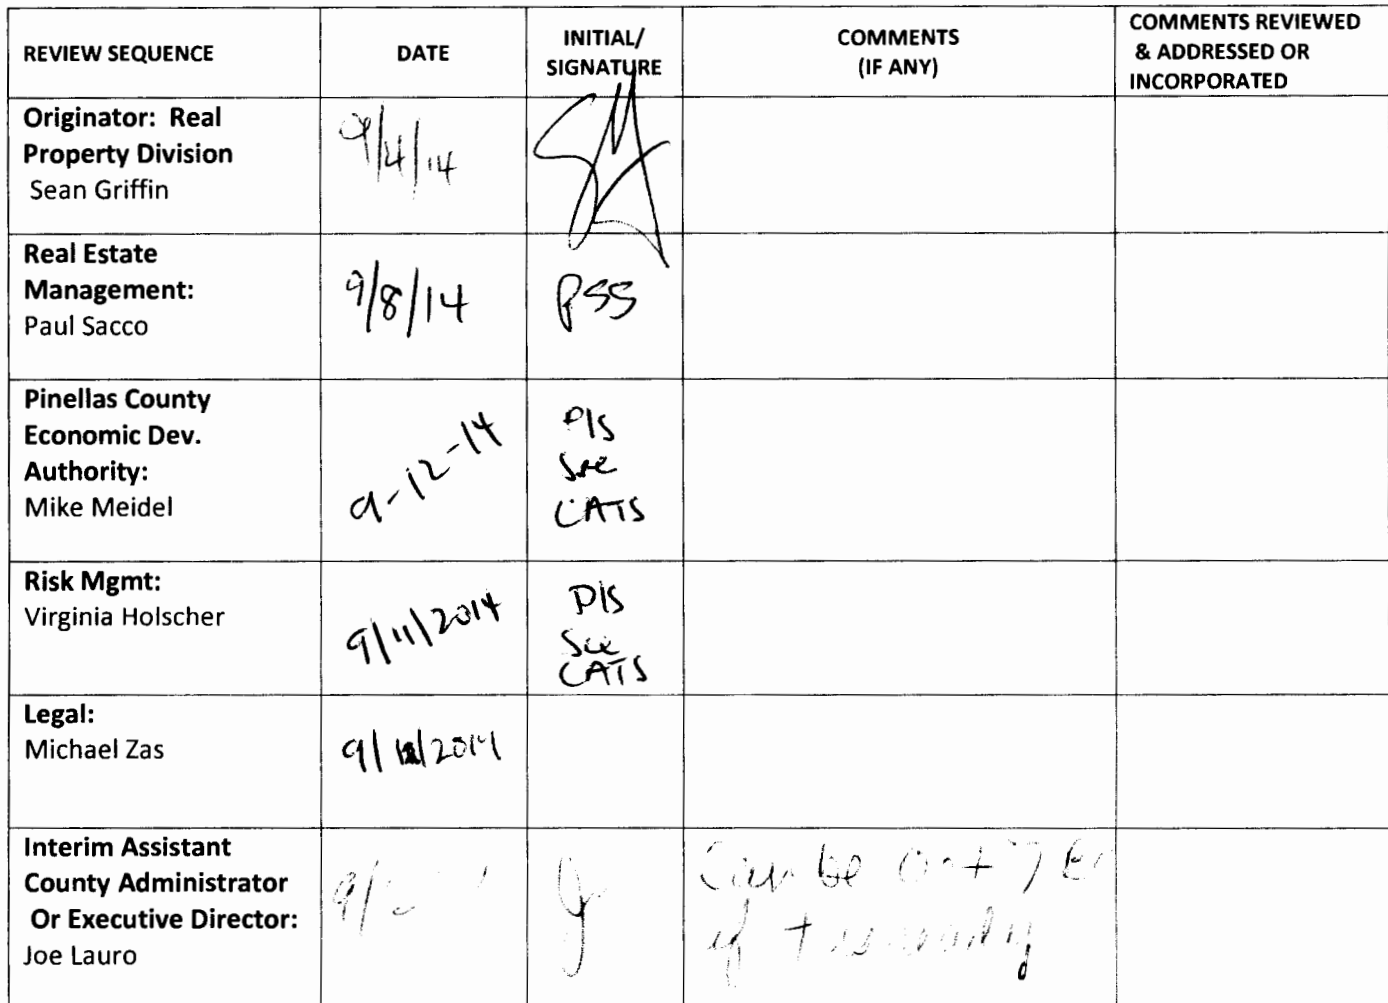 REVIEW SEQUENCE
DATE
INITIAL/
SIGNATURE
COMMENTS
(IF ANY)
COMMENTS REVIEWED
& ADDRESSED OR
INCORPORATED
Originator: Real
Property Division
Sean Griffin
9/4/14
Real Estate
Management:
Paul Sacco
9/8/14
PSS
Pinellas County
Economic Dev.
Authority:
Mike Meidel
9-12-14
See
CATS
Risk Mgmt:
Virginia Holscher
9/11/2014
See
CATS
Legal:
Michael Zas
Interim Assistant
County Administrator
Or Executive Director:
Joe Lauro
Can be
if